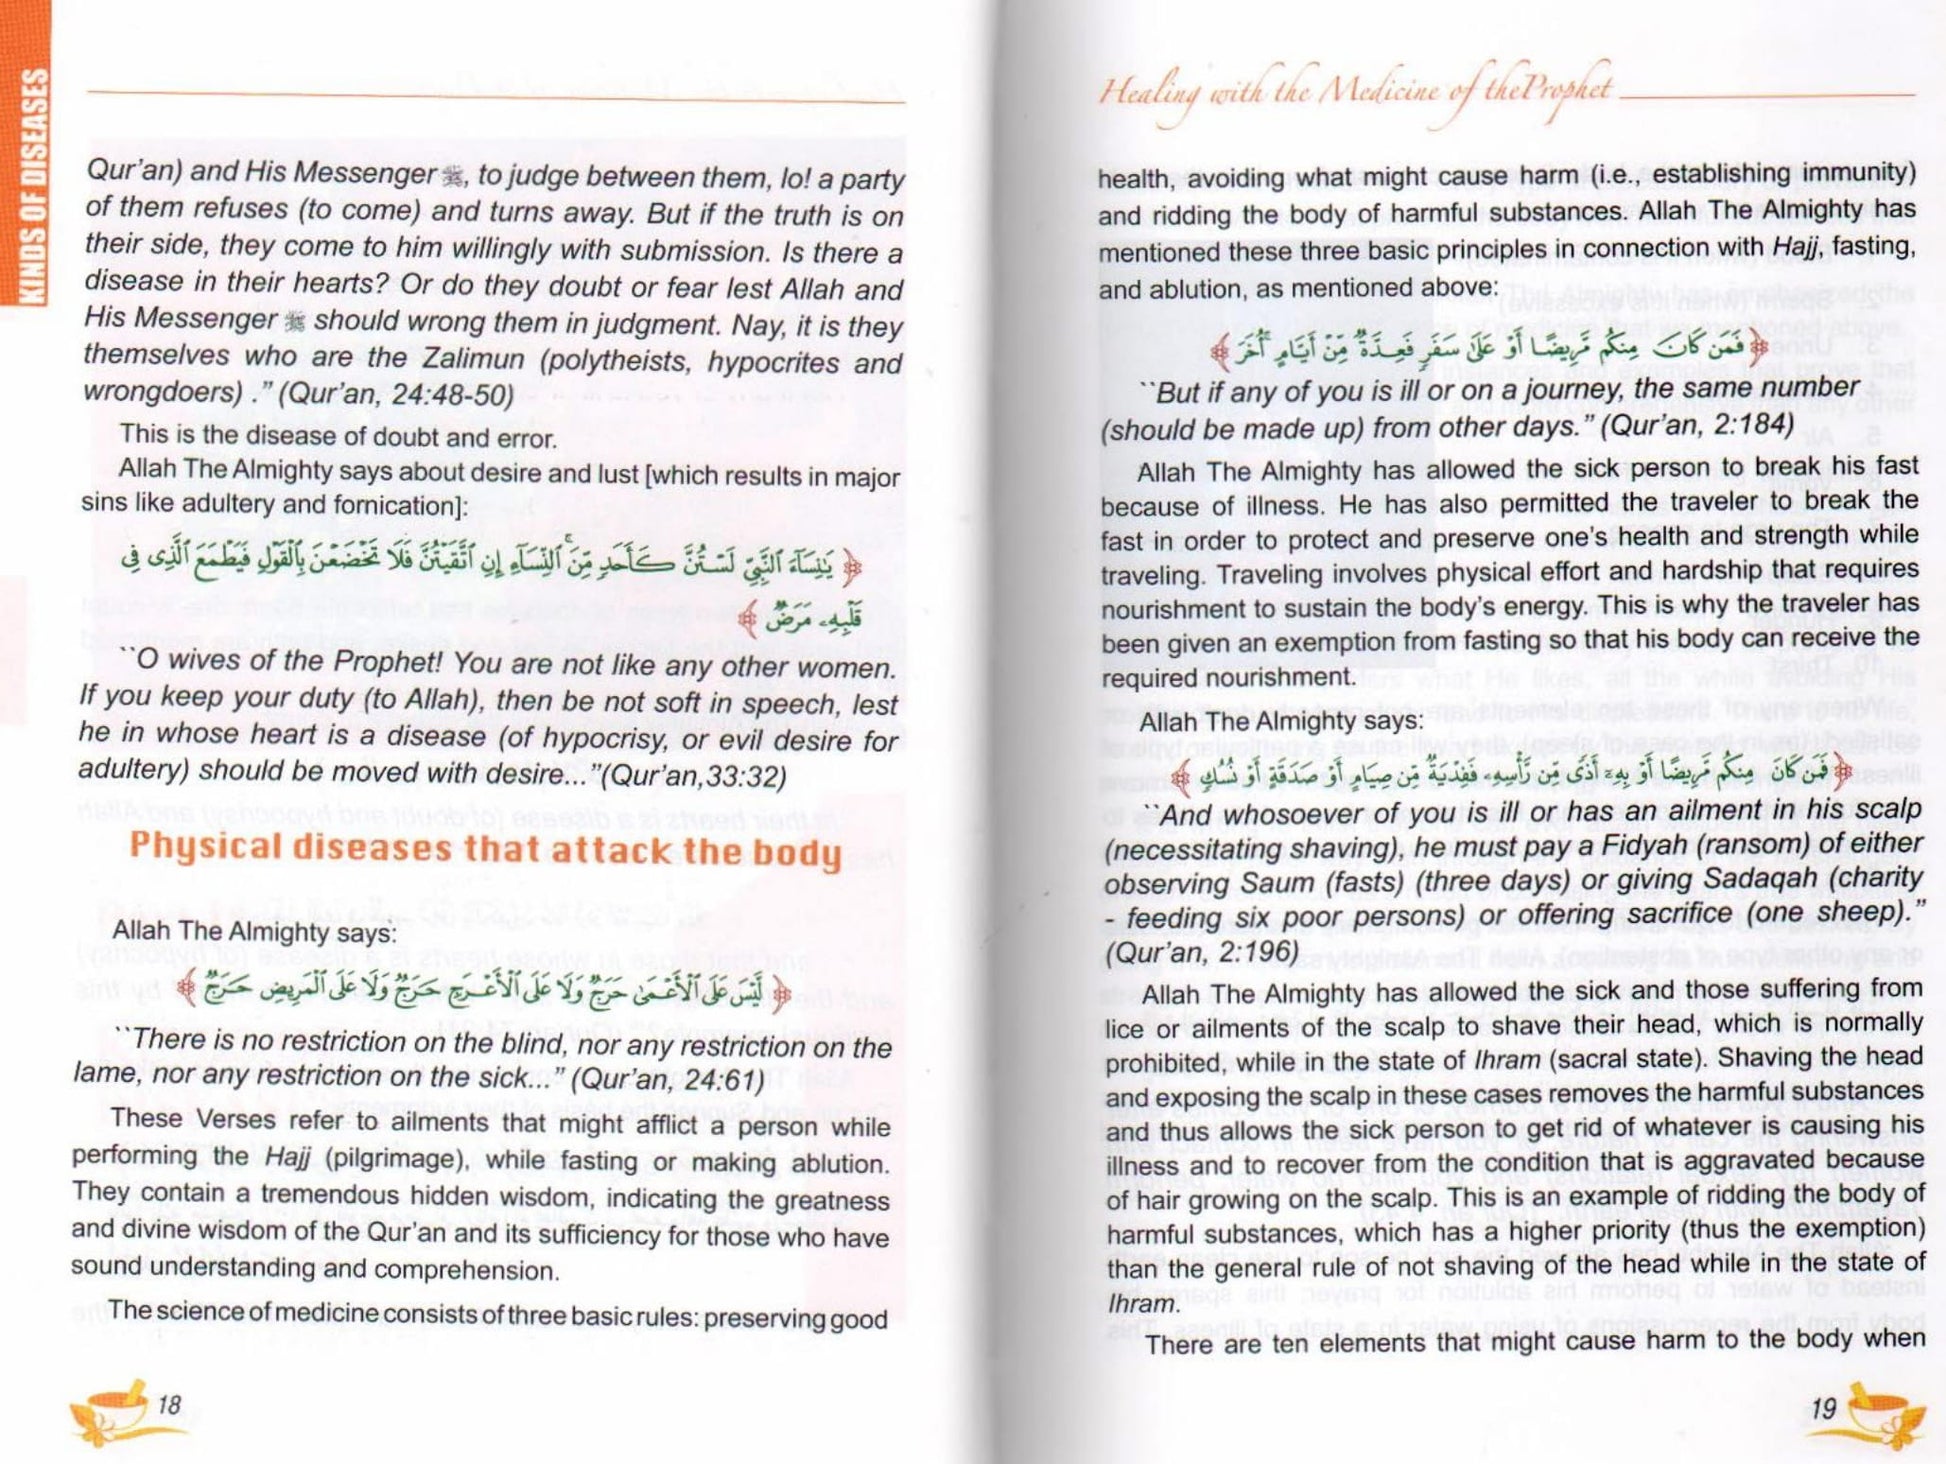 KINDS OF DISEASES
Qur’an) and His Messenger ﷺ, to judge between them, lo! a party
of them refuses (to come) and turns away. But if the truth is on
their side, they come to him willingly with submission. Is there a
disease in their hearts? Or do they doubt or fear lest Allah and
His Messenger ﷺ should wrong them in judgment. Nay, it is they
themselves who are the Zalimun (polytheists, hypocrites and
wrongdoers) .” (Qur’an, 24:48-50)
This is the disease of doubt and error.
Allah The Almighty says about desire and lust [which results in major
sins like adultery and fornication]:
﴿ يَٰنِسَآءَ ٱلنَّبِيِّ لَسْتُنَّ كَأَحَدٍ مِّنَ ٱلنِّسَآءِ إِنِ ٱتَّقَيْتُنَّ فَلَا تَخْضَعْنَ بِٱلْقَوْلِ فَيَطْمَعَ ٱلَّذِى فِى
قَلْبِهِۦ مَرَضٌ ﴾
``O wives of the Prophet! You are not like any other women.
If you keep your duty (to Allah), then be not soft in speech, lest
he in whose heart is a disease (of hypocrisy, or evil desire for
adultery) should be moved with desire...”(Qur’an,33:32)
Physical diseases that attack the body
Allah The Almighty says:
﴿ لَّيْسَ عَلَى ٱلْأَعْمَىٰ حَرَجٌ وَلَا عَلَى ٱلْأَعْرَجِ حَرَجٌ وَلَا عَلَى ٱلْمَرِيضِ حَرَجٌ ﴾
``There is no restriction on the blind, nor any restriction on the
lame, nor any restriction on the sick...” (Qur’an, 24:61)
These Verses refer to ailments that might afflict a person while
performing the Hajj (pilgrimage), while fasting or making ablution.
They contain a tremendous hidden wisdom, indicating the greatness
and divine wisdom of the Qur’an and its sufficiency for those who have
sound understanding and comprehension.
The science of medicine consists of three basic rules: preserving good
18
Healing with the Medicine of theProphet
health, avoiding what might cause harm (i.e., establishing immunity)
and ridding the body of harmful substances. Allah The Almighty has
mentioned these three basic principles in connection with Hajj, fasting,
and ablution, as mentioned above:
﴿ فَمَن كَانَ مِنكُم مَّرِيضًا أَوْ عَلَىٰ سَفَرٍ فَعِدَّةٌ مِّنْ أَيَّامٍ أُخَرَ ﴾
``But if any of you is ill or on a journey, the same number
(should be made up) from other days.” (Qur’an, 2:184)
Allah The Almighty has allowed the sick person to break his fast
because of illness. He has also permitted the traveler to break the
fast in order to protect and preserve one’s health and strength while
traveling. Traveling involves physical effort and hardship that requires
nourishment to sustain the body’s energy. This is why the traveler has
been given an exemption from fasting so that his body can receive the
required nourishment.
Allah The Almighty says:
﴿ فَمَن كَانَ مِنكُم مَّرِيضًا أَوْ بِهِۦٓ أَذًى مِّن رَّأْسِهِۦ فَفِدْيَةٌ مِّن صِيَامٍ أَوْ صَدَقَةٍ أَوْ نُسُكٍ ﴾
``And whosoever of you is ill or has an ailment in his scalp
(necessitating shaving), he must pay a Fidyah (ransom) of either
observing Saum (fasts) (three days) or giving Sadaqah (charity
- feeding six poor persons) or offering sacrifice (one sheep).”
(Qur’an, 2:196)
Allah The Almighty has allowed the sick and those suffering from
lice or ailments of the scalp to shave their head, which is normally
prohibited, while in the state of Ihram (sacral state). Shaving the head
and exposing the scalp in these cases removes the harmful substances
and thus allows the sick person to get rid of whatever is causing his
illness and to recover from the condition that is aggravated because
of hair growing on the scalp. This is an example of ridding the body of
harmful substances, which has a higher priority (thus the exemption)
than the general rule of not shaving of the head while in the state of
Ihram.
There are ten elements that might cause harm to the body when
19